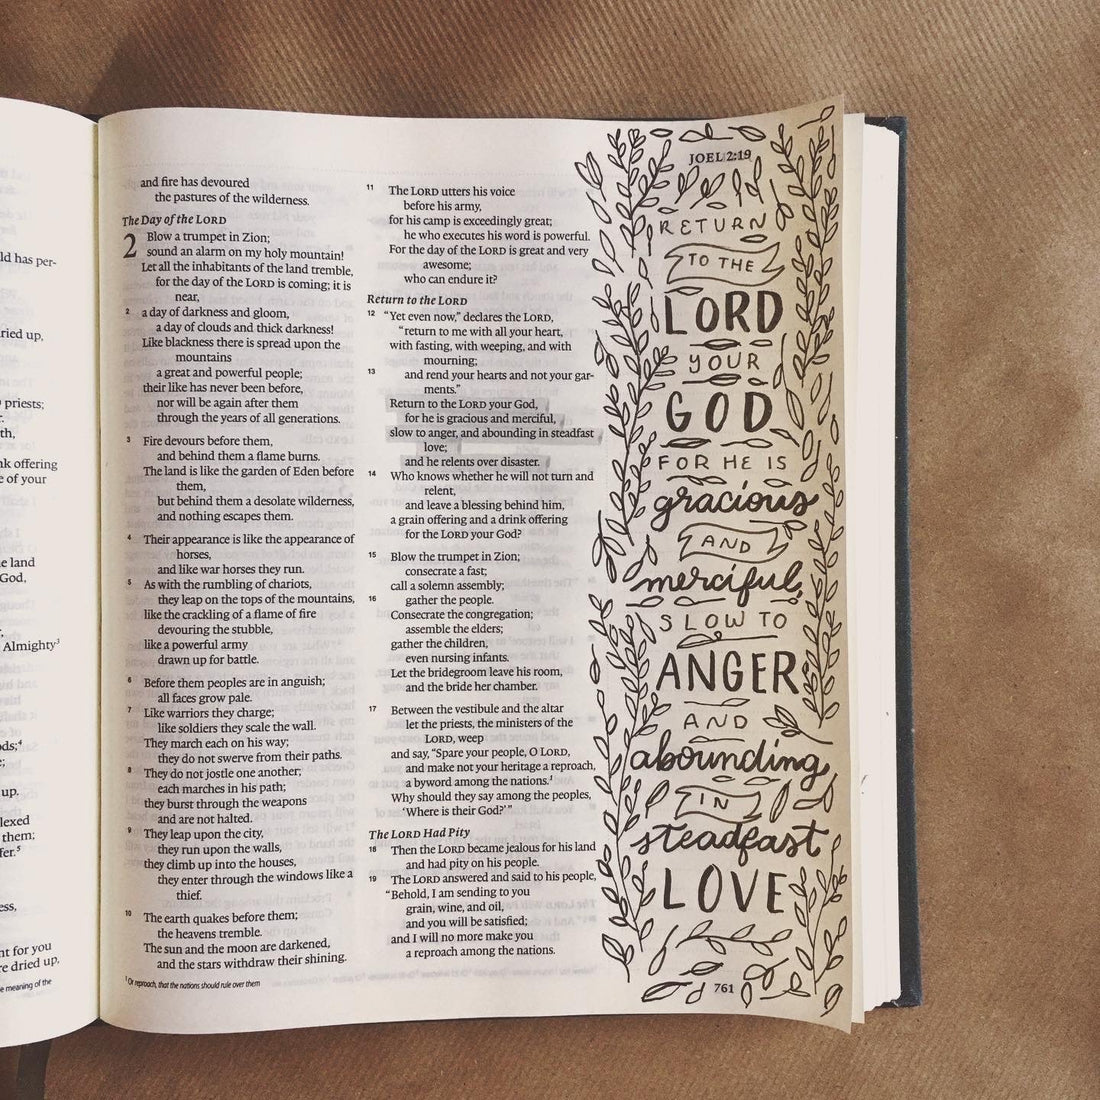 ld has per-
ried up,
priests;
r.
th,
nk offering
e of your
e land
God,
r,
Almighty3
ods;4
e;
up.
lexed
them;
fer.5
ess,
nt for you
re dried up,
e meaning of the
and fire has devoured
the pastures of the wilderness.
The Day of the LORD
2 Blow a trumpet in Zion;
sound an alarm on my holy mountain!
Let all the inhabitants of the land tremble,
for the day of the LORD is coming; it is
near,
2 a day of darkness and gloom,
a day of clouds and thick darkness!
Like blackness there is spread upon the
mountains
a great and powerful people;
their like has never been before,
nor will be again after them
through the years of all generations.
3 Fire devours before them,
and behind them a flame burns.
The land is like the garden of Eden before
them,
but behind them a desolate wilderness,
and nothing escapes them.
4 Their appearance is like the appearance of
horses,
and like war horses they run.
5 As with the rumbling of chariots,
they leap on the tops of the mountains,
like the crackling of a flame of fire
devouring the stubble,
like a powerful army
drawn up for battle.
6 Before them peoples are in anguish;
all faces grow pale.
7 Like warriors they charge;
like soldiers they scale the wall.
They march each on his way;
they do not swerve from their paths.
8 They do not jostle one another;
each marches in his path;
they burst through the weapons
and are not halted.
9 They leap upon the city,
they run upon the walls,
they climb up into the houses,
they enter through the windows like a
thief.
10 The earth quakes before them;
the heavens tremble.
The sun and the moon are darkened,
and the stars withdraw their shining.
1 Or reproach, that the nations should rule over them
11 The LORD utters his voice
before his army,
for his camp is exceedingly great;
he who executes his word is powerful.
For the day of the LORD is great and very
awesome;
who can endure it?
Return to the LORD
12 "Yet even now," declares the LORD,
"return to me with all your heart,
with fasting, with weeping, and with
mourning;
13 and rend your hearts and not your gar-
ments."
Return to the LORD your God,
for he is gracious and merciful,
slow to anger, and abounding in steadfast
love;
and he relents over disaster.
14 Who knows whether he will not turn and
relent,
and leave a blessing behind him,
a grain offering and a drink offering
for the LORD your God?
15 Blow the trumpet in Zion;
consecrate a fast;
call a solemn assembly;
16 gather the people.
Consecrate the congregation;
assemble the elders;
gather the children,
even nursing infants.
Let the bridegroom leave his room,
and the bride her chamber.
17 Between the vestibule and the altar
let the priests, the ministers of the
LORD, weep
and say, "Spare your people, O LORD,
and make not your heritage a reproach,
a byword among the nations.1
Why should they say among the peoples,
'Where is their God?'"
The LORD Had Pity
18 Then the LORD became jealous for his land
and had pity on his people.
19 The LORD answered and said to his people,
"Behold, I am sending to you
grain, wine, and oil,
and you will be satisfied;
and I will no more make you
a reproach among the nations.
JOEL 2:19
RETURN
TO THE
LORD
YOUR
GOD
FOR HE IS
gracious
AND
merciful,
SLOW TO
ANGER
AND
abounding
IN
steadfast
LOVE
761